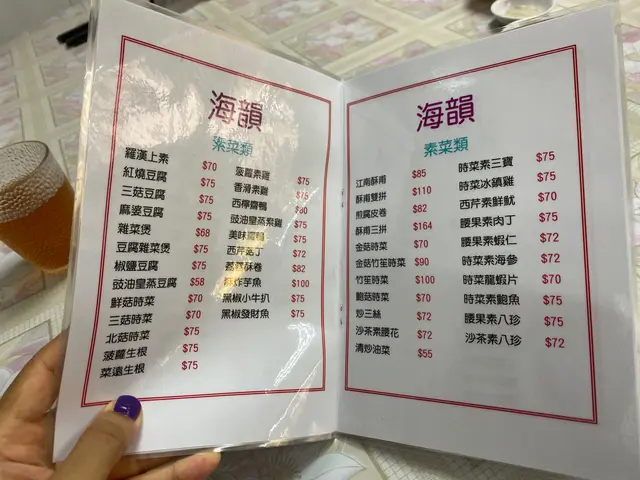 海韻
素菜類
羅漢上素 $70
紅燒豆腐 $75
三菇豆腐 $75
麻婆豆腐 $75
雜菜煲 $68
豆腐雜菜煲 $75
椒鹽豆腐 $75
豉油皇蒸豆腐 $58
鮮菇時菜 $70
三菇時菜 $70
北菇時菜 $75
菠蘿生根 $75
菜遠生根 $75
菠蘿素雞 $75
香滑素雞 $75
西檸齋鴨 $80
豉油皇蒸素雞 $75
美味 $75
西芹 丁 $72
酥卷 $82
炸芋魚 $100
黑椒小牛扒 $75
黑椒發財魚 $75
海韻
素菜類
江南酥甫 $85
酥甫雙拼 $110
煎腐皮卷 $82
酥甫三拼 $164
金菇時菜 $70
金菇竹笙時菜 $90
竹笙時菜 $100
鮑菇時菜 $70
炒三絲 $72
沙茶素腰花 $72
清炒油菜 $55
時菜素三寶 $75
時菜冰鎮雞 $75
西芹素鮮魷 $70
腰果素肉丁 $75
腰果素蝦仁 $72
時菜素海參 $72
時菜龍蝦片 $70
時菜素鮑魚 $75
腰果素八珍 $75
沙茶素八珍 $72